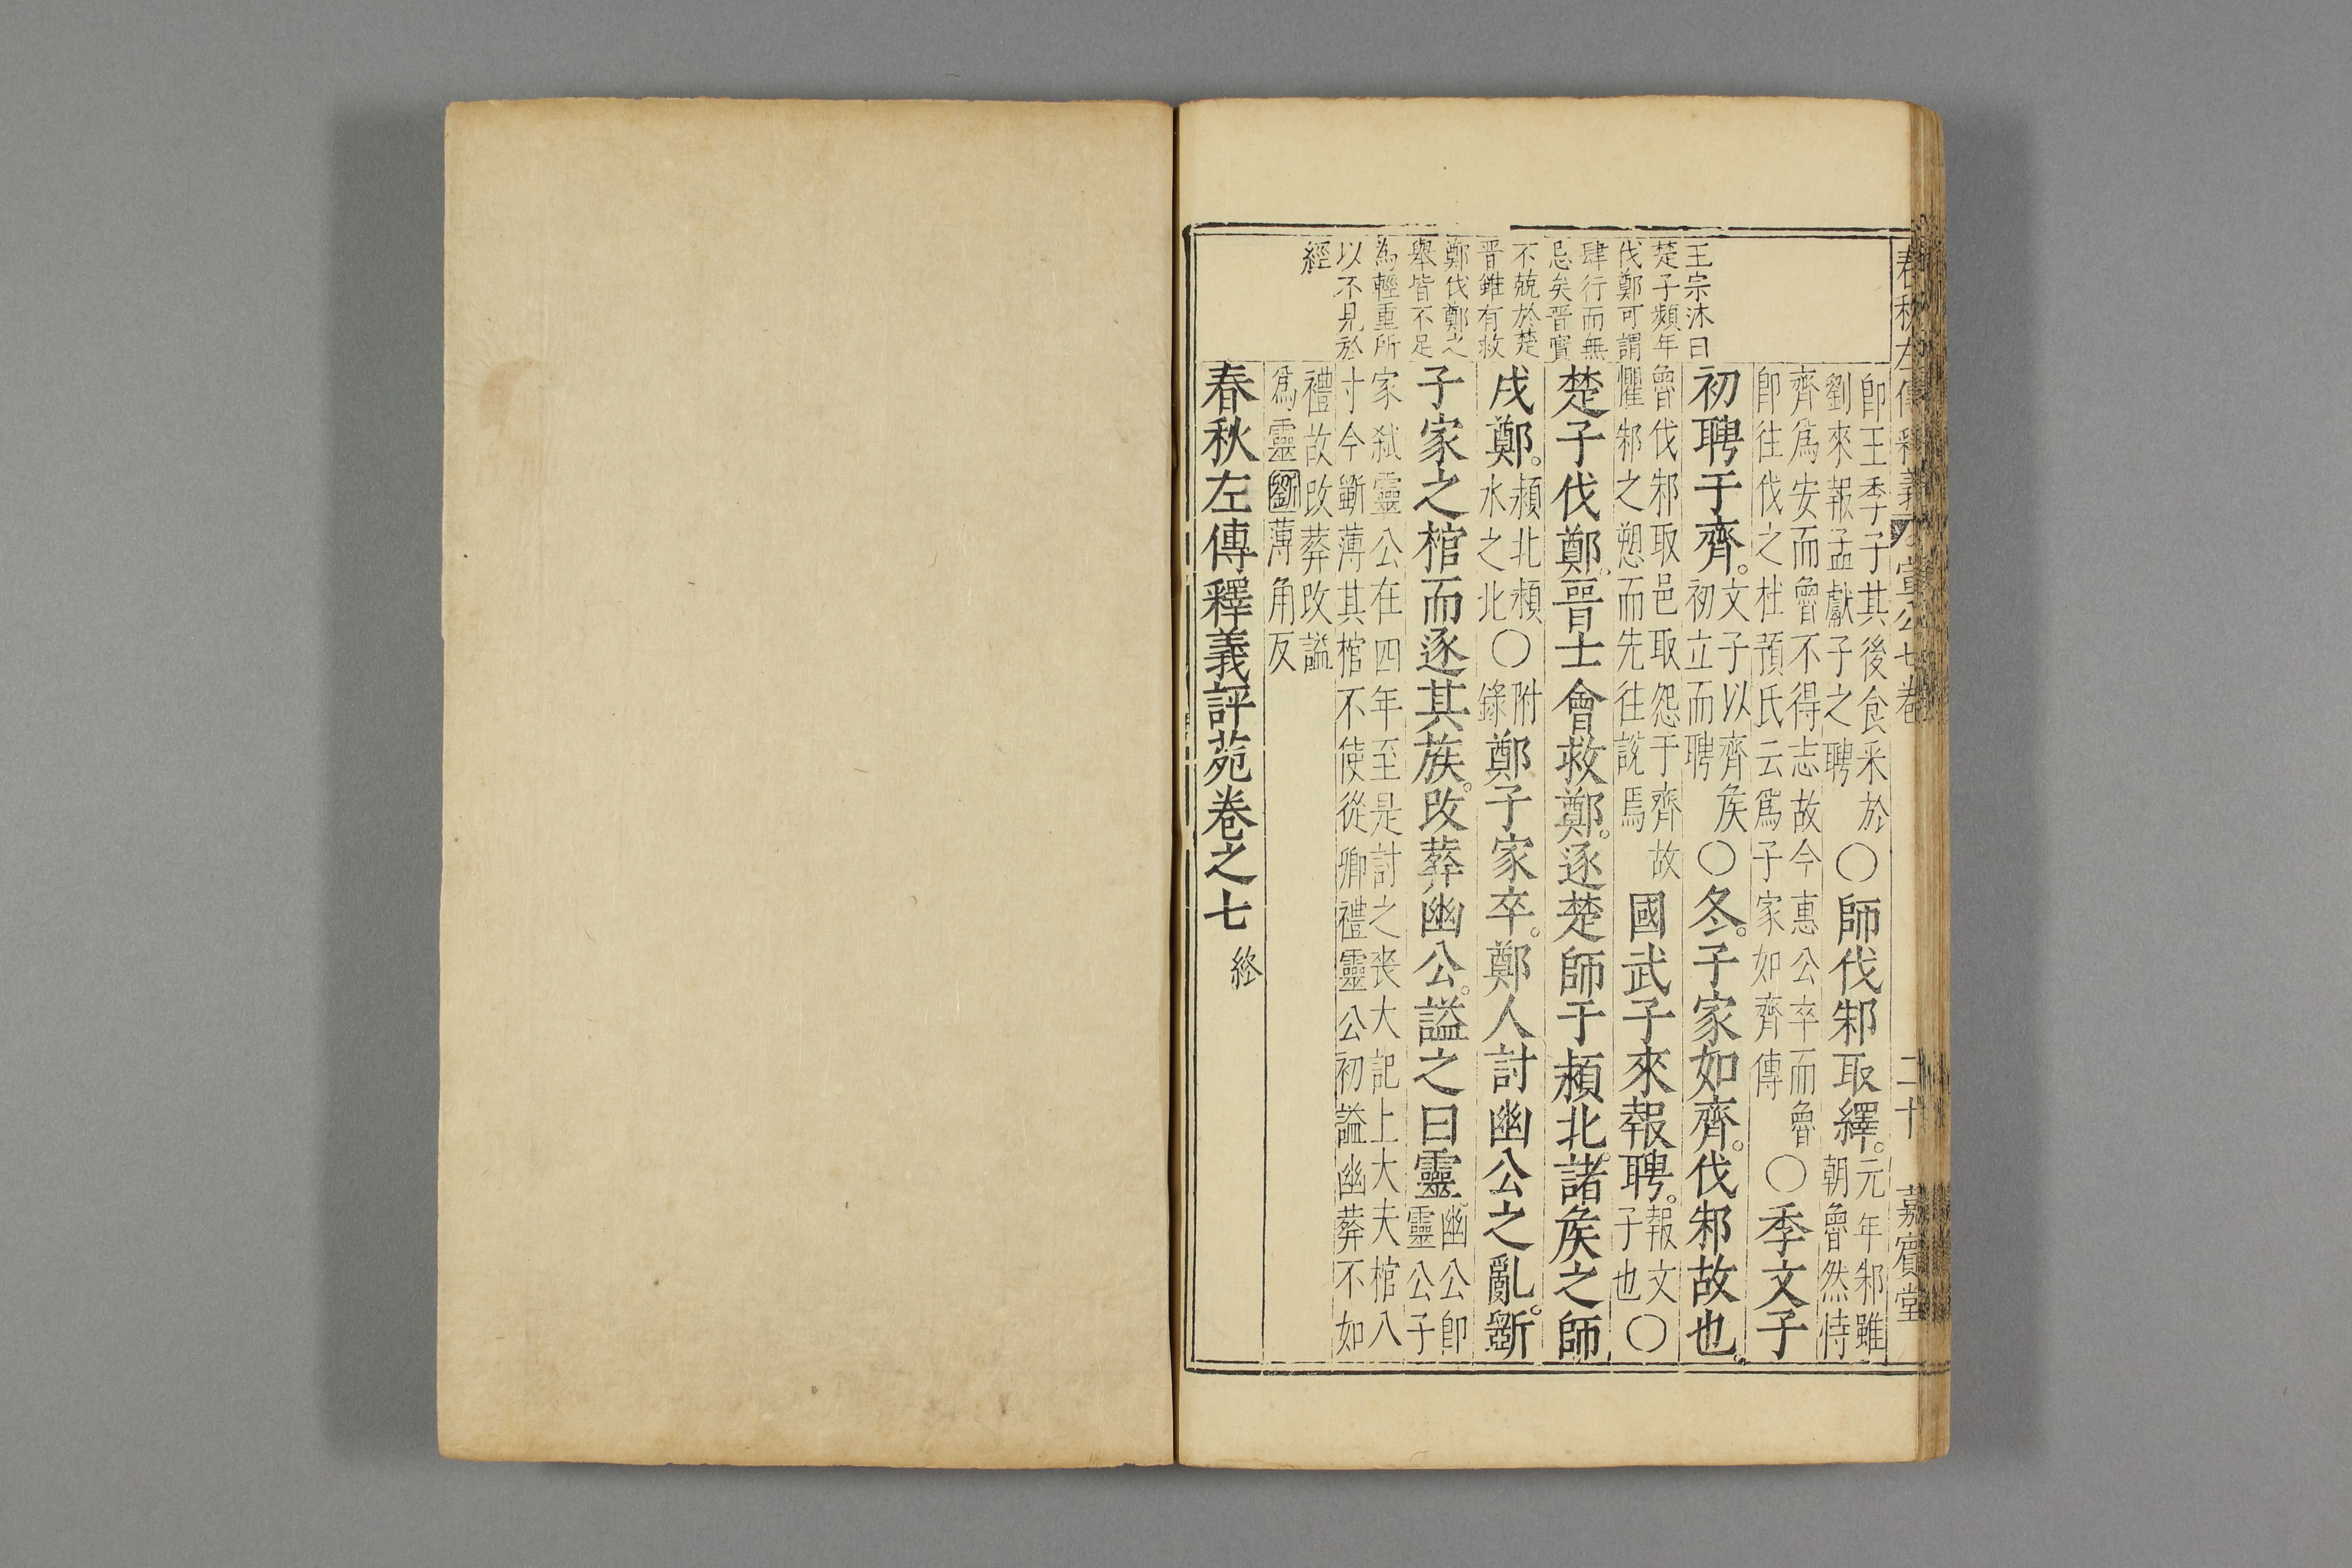 春秋左傳釋義 宣公七卷 二十 嘉賓堂
王宗沐曰
楚子頻年
伐鄭可謂
肆行而無
忌矣晉實
不競於楚
晉雖有救
鄭伐鄭之
舉皆不足
為輕重所
以不見於
經
即王季子其後食采於
劉來報孟獻子之聘
○師伐邾取繹。
元年邾雖
朝魯然恃
齊爲安而魯不得志故今惠公卒而魯
即往伐之杜預氏云爲子家如齊傳
○季文子
初聘于齊。
文子以齊矦
初立而聘
○冬。子家如齊。伐邾故也。
魯伐邾取邑取怨于齊故
懼邾之愬而先往說焉
國武子來報聘。
報文
子也
○
楚子伐鄭。晉士會救鄭。逐楚師于潁北。諸矦之師
戌鄭。
潁北潁
水之北
○
附
錄
鄭子家卒。鄭人討幽公之亂。斲
子家之棺而逐其族。改葬幽公。謚之曰靈
幽公即
靈公子
家弑靈公在四年至是討之喪大記上大夫棺八
寸今斲薄其棺不使從卿禮靈公初謚幽葬不如
禮故改葬改謚
爲靈斲薄角反
春秋左傳釋義評苑卷之七 終